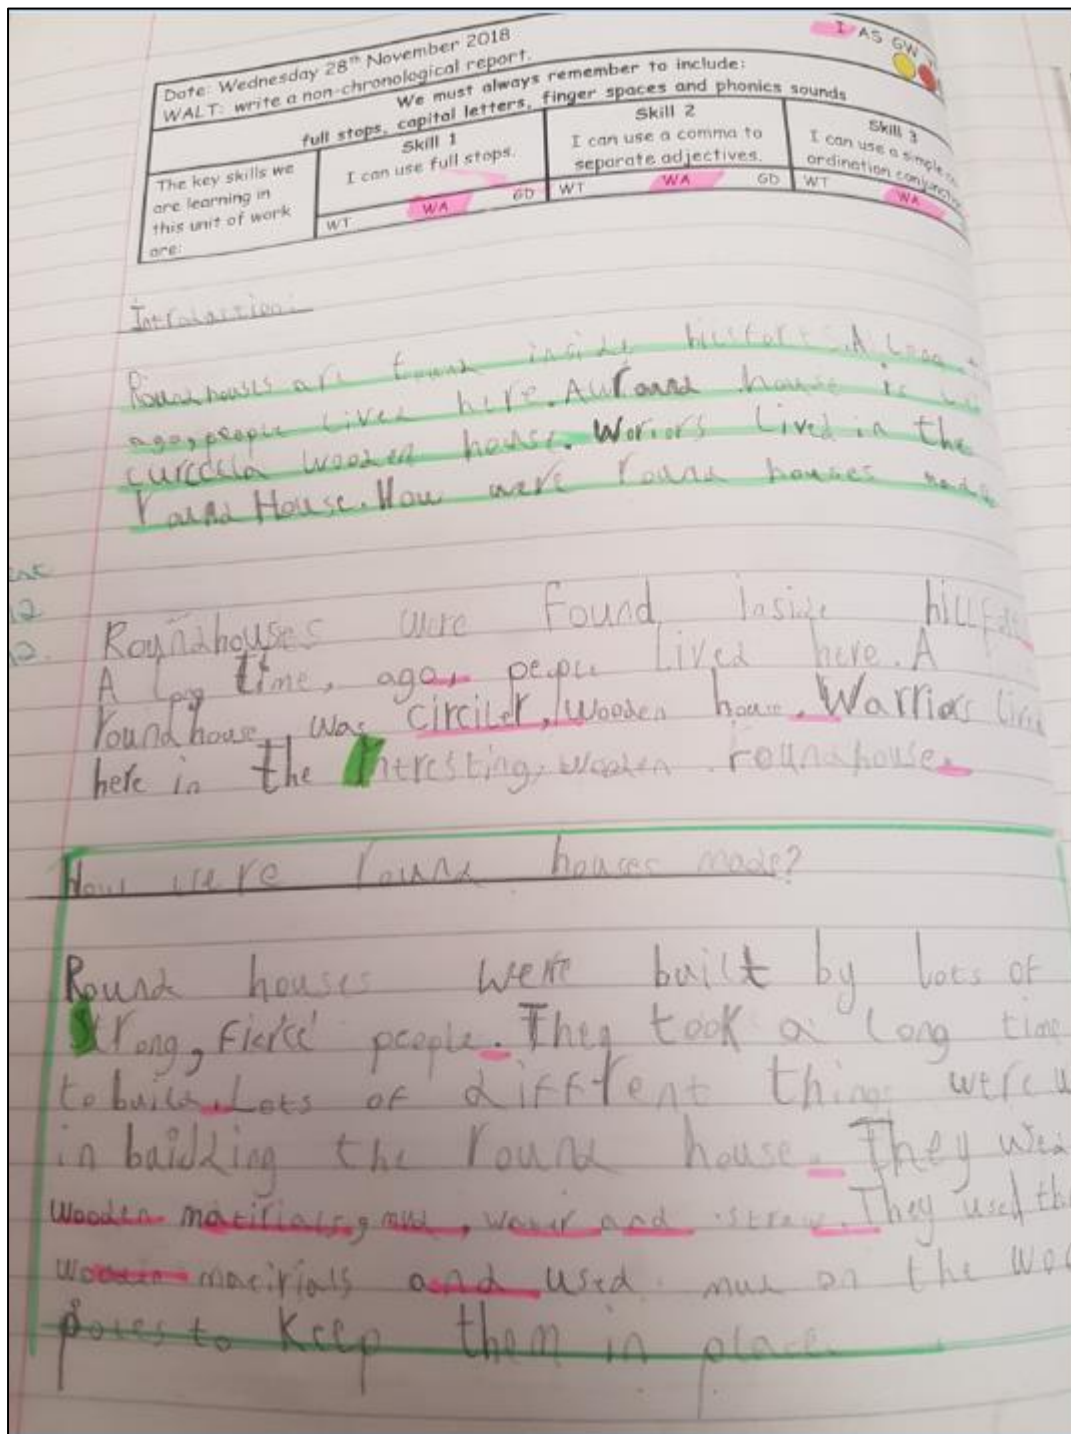 I AS GW
Date: Wednesday 28th November 2018
WALT: write a non-chronological report.
We must always remember to include:
full stops, capital letters, finger spaces and phonics sounds
The key skills we
are learning in
this unit of work
are:
Skill 1
I can use full stops.
WT WA GD
Skill 2
I can use a comma to
separate adjectives.
WT WA GD
Skill 3
I can use a simple
ordination
WT WA
Introduction:
Roundhouses are found inside hillforts. A Long
ago, people lived here. A round house is
wooden house. Woriors Lived in the
round House. How were round houses made
Roundhouses were Found Inside
A Long time, ago, people Lived here. A
roundhouse was circiler, Wooden house. Warriors
here in the Interesting, wooden roundhouse.
How were round houses made?
Round houses were built by Lots of
Strong, Fierce people. They took a Long time
to build. Lots of diffrent things were
in baidding the round house. They
Wooden matirials, mud, water and straw. They used
wooden matirials and used mud on the
poles to Keep them in place.